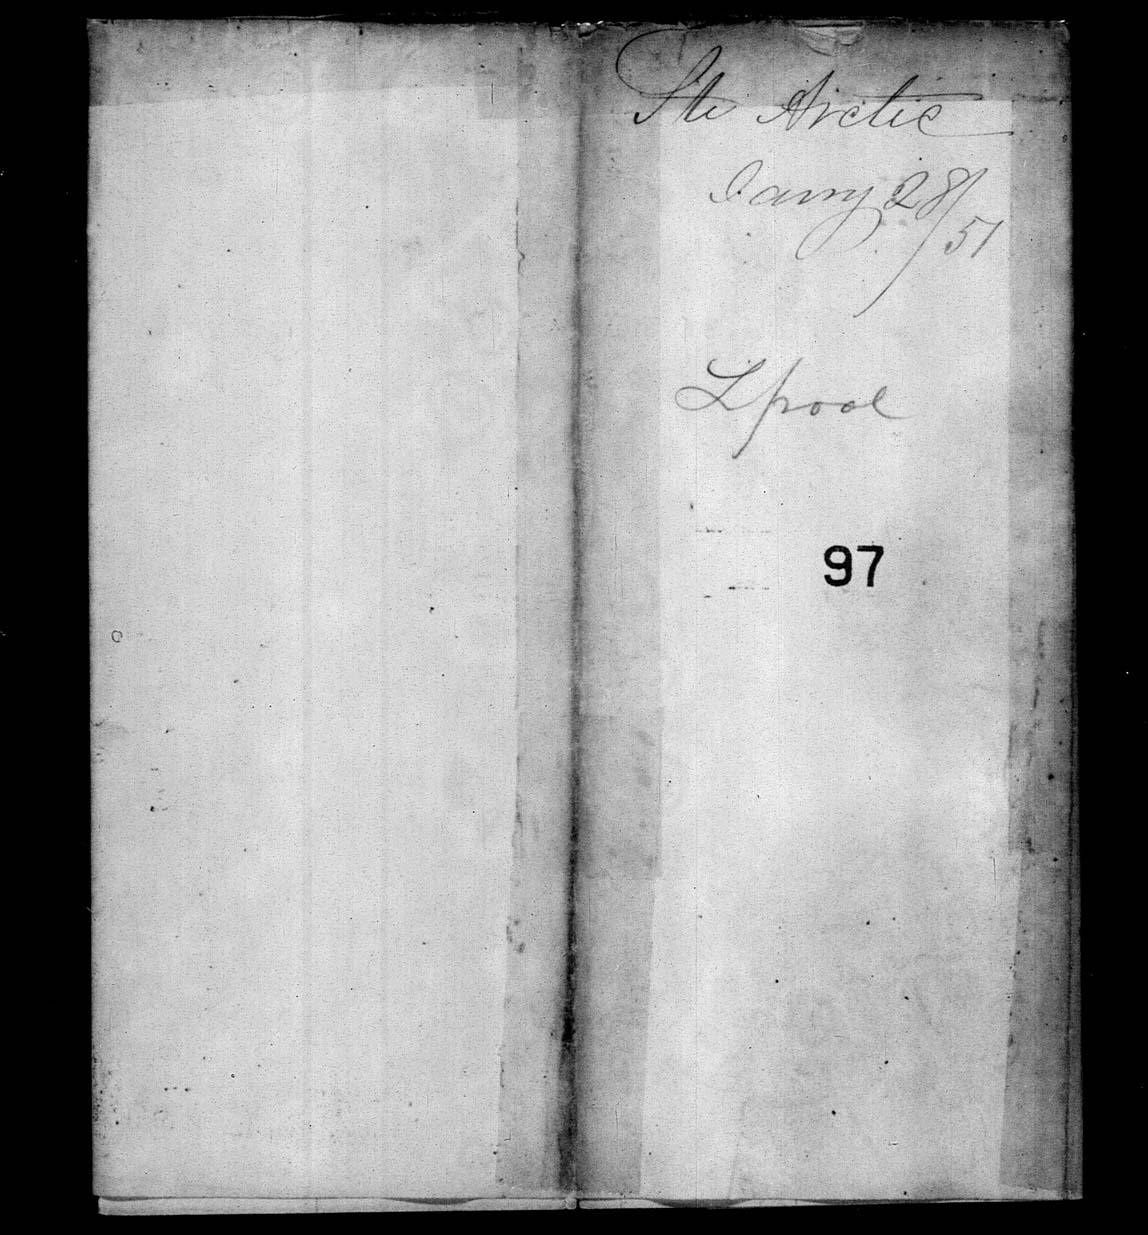 Str Arctic
Jany 28/51
Lpool
97